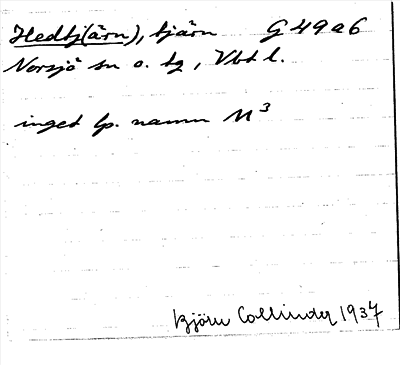 Hedtj(ärn), tjärn G49a6
Norsjö sn o. tg, Vbtl.
inget lp. namn M³
Björn Collinder 1937